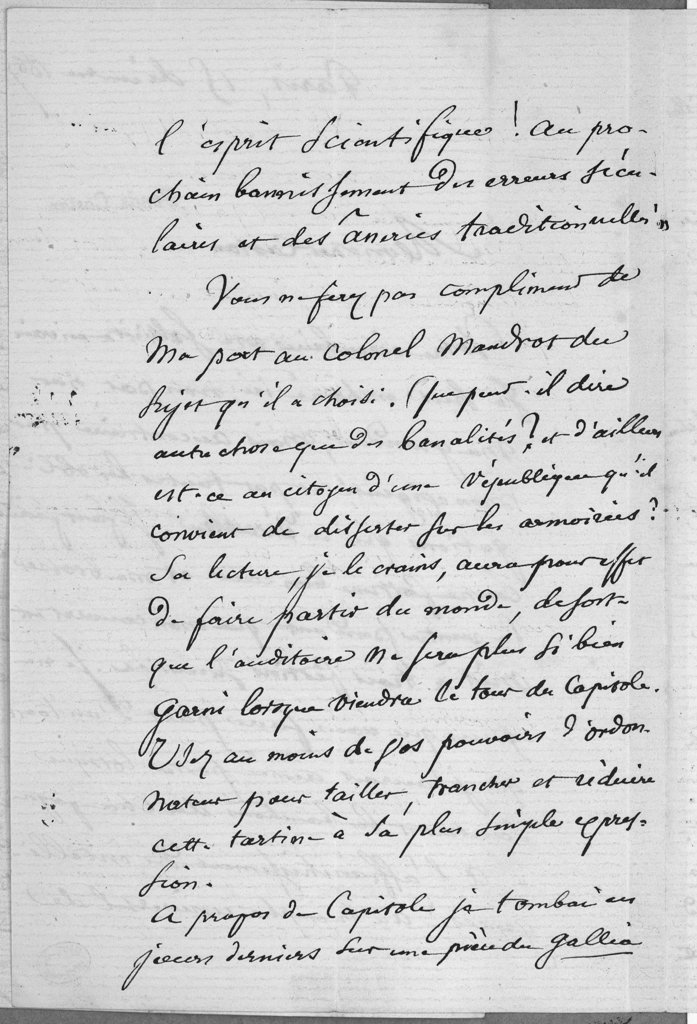 l'esprit scientifique! Au pro-
chain bannissement des erreurs sécu-
laires et des âneries traditionnelles!"
Vous ne ferez pas compliment de
ma part au Colonel Mandrot du
sujet qu'il a choisi. Que peut-il dire
autre chose que des banalités? et d'ailleurs
est-ce au citoyen d'une République qu'il
convient de disserter sur les armoiries?
Sa lecture, je le crains, aura pour effet
de faire partir du monde, de sorte
que l'auditoire ne sera plus si bien
garni lorsque viendra le tour du Capitole.
Usez au moins de vos pouvoirs d'ordon-
nateur pour tailler, trancher et réduire
cette tartine à sa plus simple expres-
sion.
A propos de Capitole je tombai ces
jours derniers sur une pièce du Gallia